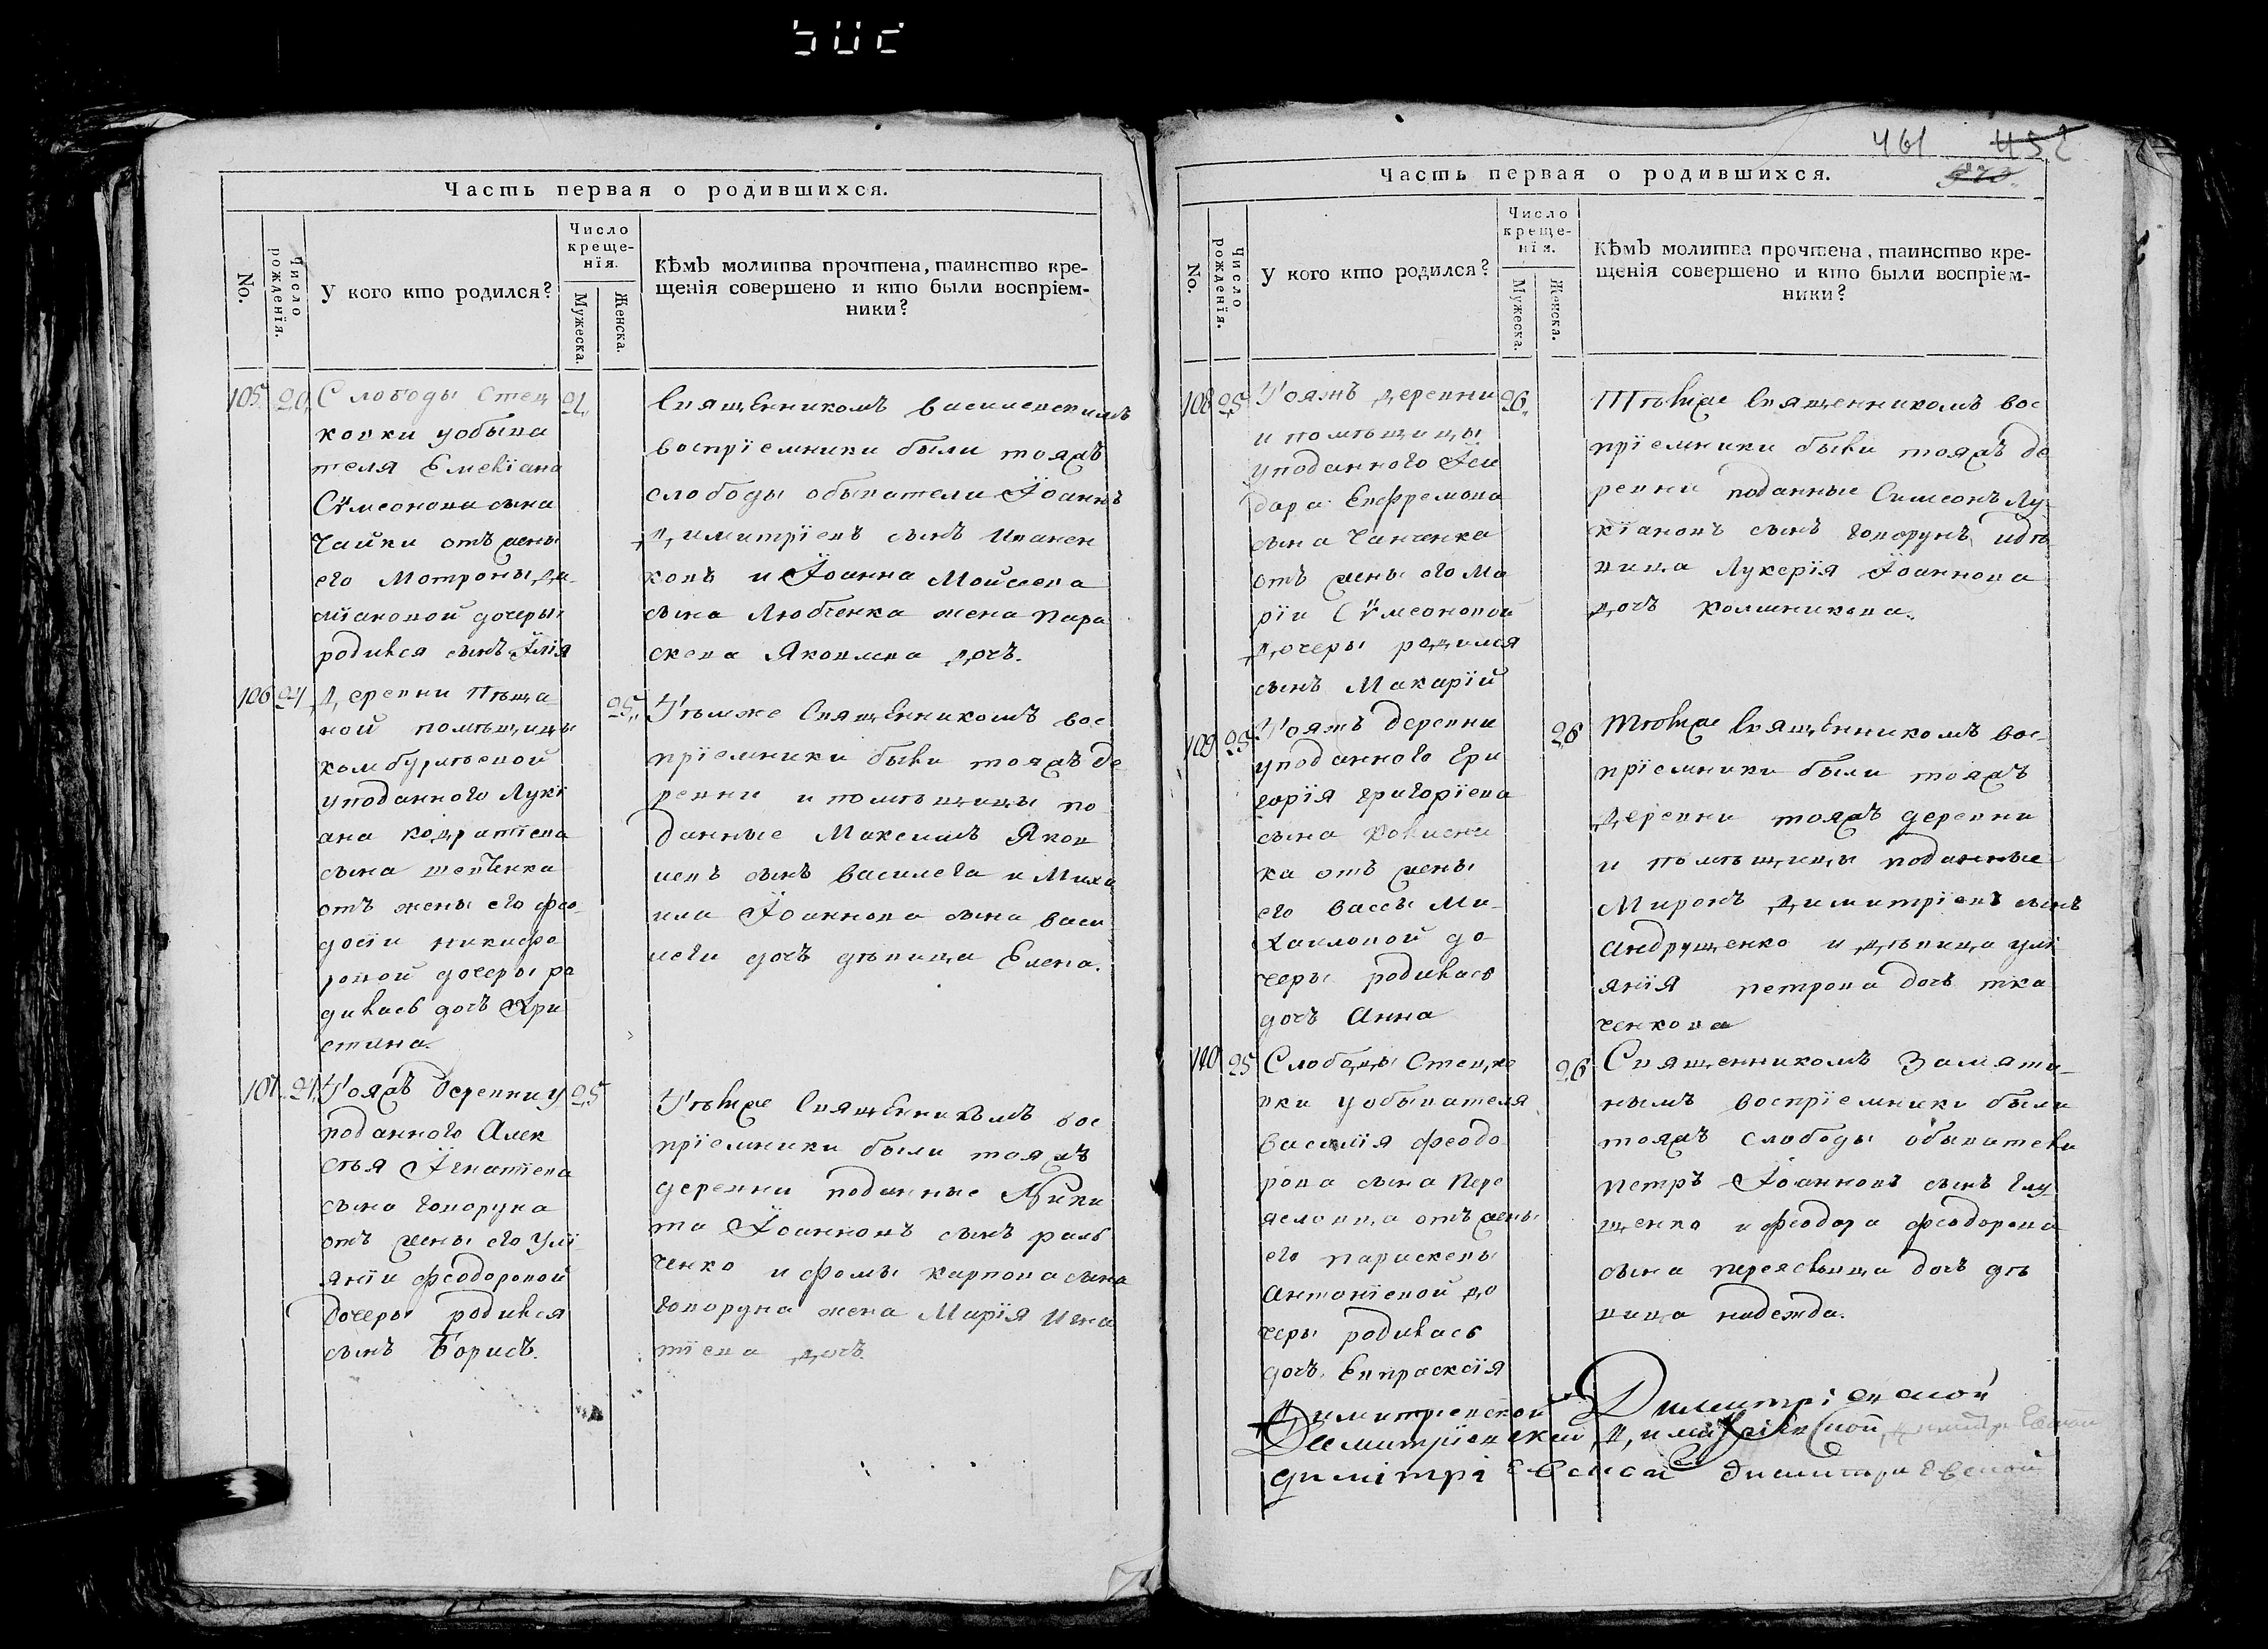 502
Часть первая о родившихся.
No.
Число рожденїя.
У кого кто родился?
Число
креще-
нїя.
Мужеска.
Женска.
Кѣмъ молитва прочтена, таинство кре-
щенія совершено и кто были воспріем-
ники?
105 20 Слободы Стец
ковки у обыва
теля Емелїана
Сѵмеонова сына
Чайки отъ жены
его Мотроны да
мїановой дочеры
родился сынъ Їлїя
21.
Священникомъ василевскимъ
воспрїемники были тояжъ
слободы обыватели Їоаннъ
Димитрїевъ сынъ Иванен
ковъ и Їоанна Мойсеева
сына Любченка жена Пара
скева Яковлева дочъ.
106 24 Деревни Пѣща
ной помѣщицы
комбурлѣевой
у поданного Лукї
ана кодратїева
сына шевченка
отъ жены его фео
досїи никифо
ровой дочеры ро
дилась дочъ Хри
стина.
25.
Тѣмже Священникомъ вос
прїемники были тояжъ де
ревни и помѣщицы по
данные Максимъ Яков
левъ сынъ василега и Миха
ила Їоаннова сына васи
леги дочъ дѣвица Елена.
107. 24. Тояжъ деревни у
поданного Алек
сѣя Їгнатїева
сына говоруна
отъ жены его Улї
янїи феодоровой
дочеры родился
сынъ Борисъ.
25
Тѣмже Священникомъ вос
прїемники были тояжъ
деревни поданные Ники
та Їоанновъ сынъ раль
ченко и фомы карпова сына
говоруна жена Марїя Игна
тїева дочъ.
461 452
Часть первая о родившихся.
No.
Число рожденїя.
У кого кто родился?
Число
креще-
нія.
Мужеска.
Женска.
Кѣмъ молитва прочтена, таинство кре-
щенія совершено и кто были воспріем-
ники?
108 25 Тояжъ деревни
и помѣщицы
у поданного Їси
дора Евфремова
сына Чанченка
отъ жены его Ма
рїи Сѵмеоновой
дочеры родился
сынъ Макарїй
26.
Тѣмже Священникомъ вос
прїемники были тояжъ де
ревни поданные Симеонъ Лу
кїановъ сынъ говорунъ и дѣ
вица Лукерїя Їоаннова
дочъ колшникова.
109 25 Тояжъ деревни
у поданного Гри
горїя григорїева
сына
ка отъ жены
его вассы Ми
хаиловой до
черы родилась
дочъ Анна
26
Тѣмже Священникомъ вос
прїемники были тояжъ
деревни тояжъ деревни
и помѣщицы поданные
Миронъ Димитрїевъ сынъ
андрущенко и дѣвица улї
янїя петрова дочъ тка
ченкова
110 25 Слободы Стецко
вки у обывателя
василїя феодо
рова сына Пере
яславца отъ жены
его парискевы
антонїевой до
черы родилась
дочъ Евпраксїя
26
Священникомъ Замяти
нымъ воспрїемники были
тояжъ слободы обыватели
петръ Їоанновъ сынъ глу
щенко и феодора феодорова
сына переяславца дочъ дѣ
вица надежда.
Димитрїевской Димитрїевской
Димитрїевской Димитрїевской Димитрїевской
димітріевской димитриевской